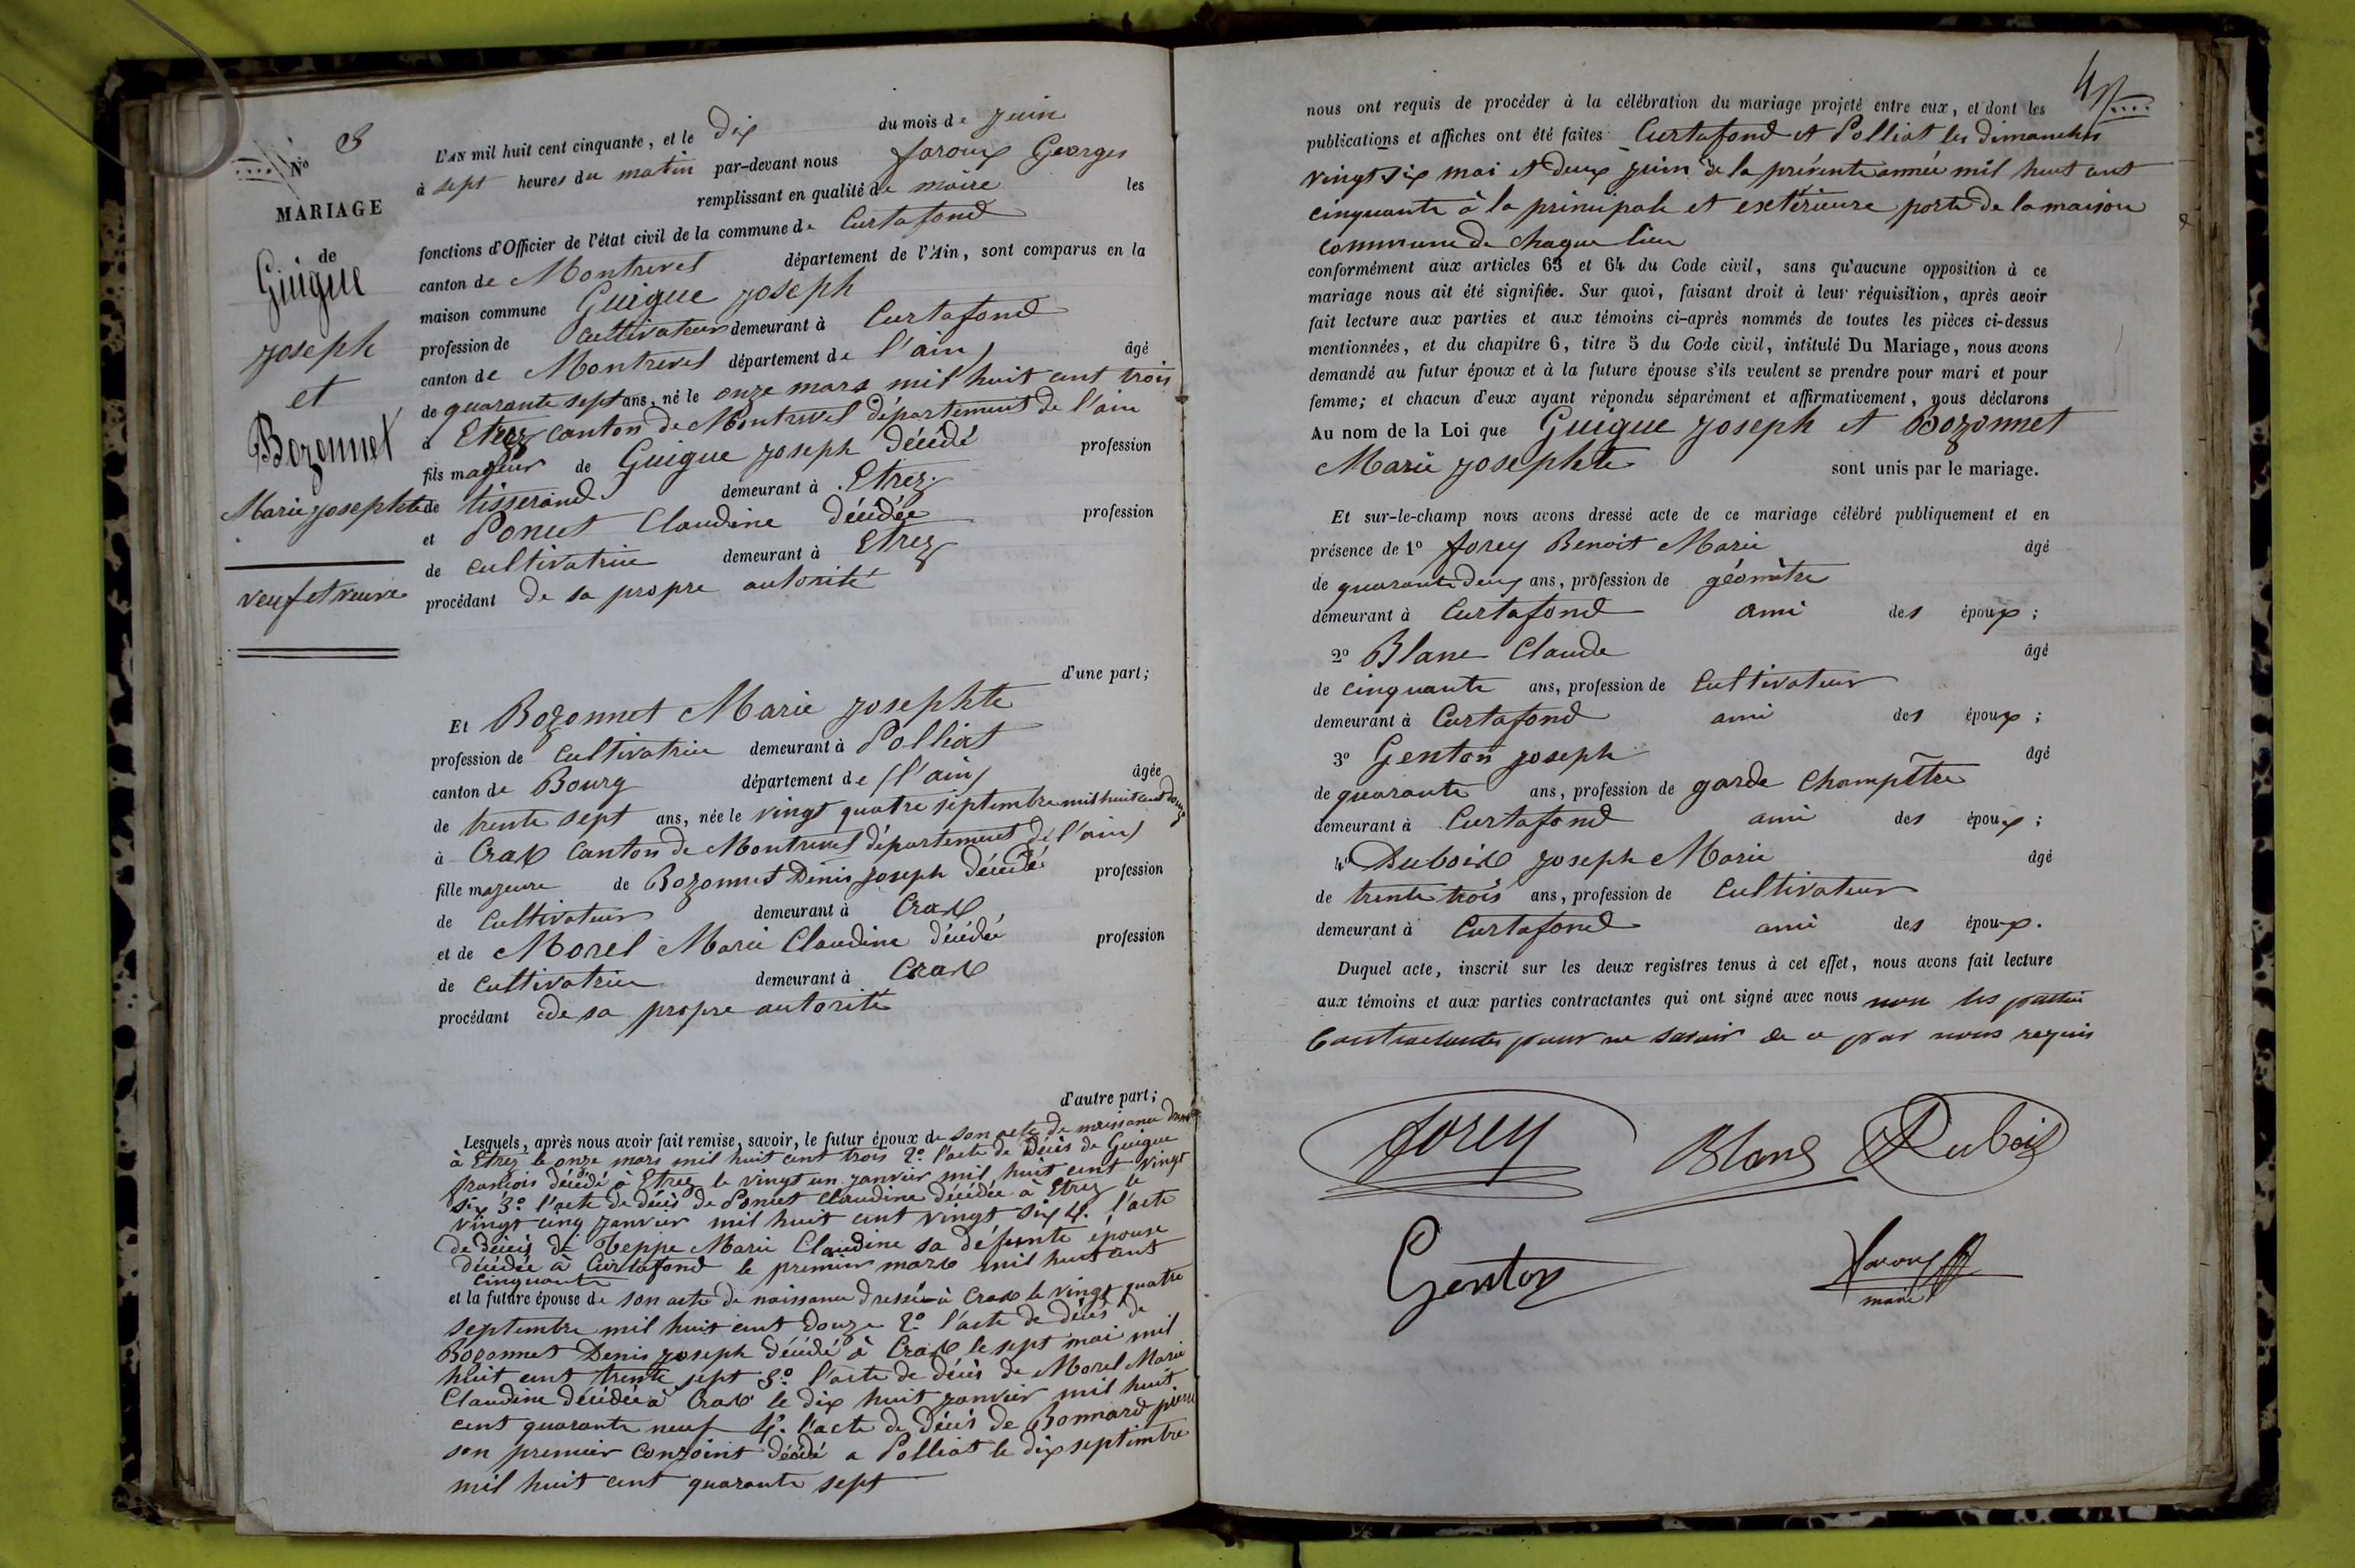 N° 8
MARIAGE
de
Guigue
joseph
et
Bozonnet
Marie josephte
veuf et veuve
L'AN mil huit cent cinquante, et le dix du mois de juin
à sept heures du matin par-devant nous faroux Georges
remplissant en qualité de maire les
fonctions d'Officier de l'état civil de la commune de Curtafond
canton de Montrevel département de l'Ain, sont comparus en la
maison commune Guigue joseph
profession de cultivateur demeurant à Curtafond
canton de Montrevel département de l'ain) âgé
de quarante sept ans, né le onze mars mil huit cent trois
à Etrez canton de Montrevel département de l'ain
fils majeur de Guigue joseph décédé profession
de tisserand demeurant à Etrez
et Poncet Claudine décédée profession
de cultivatrice demeurant à Etrez
procédant de sa propre autorité
d'une part;
Et Bozonnet Marie josephte
profession de cultivatrice demeurant à Polliat
canton de Bourg département de (l'ain) âgée
de trente sept ans, née le vingt quatre septembre mil huit cent douze
à Cras canton de Montrevel département de l'ain)
fille majeure de Bozonnet Denis joseph décédé profession
de Cultivateur demeurant à Cras
et de Morel Marie Claudine décédée profession
de cultivatrice demeurant à Cras
procédant de sa propre autorité
d'autre part;
Lesquels, après nous avoir fait remise, savoir, le futur époux de son acte de naissance
à Etrez le onze mars mil huit cent trois 2° l'acte de décès de Guigue
françois décédé à Etrez le vingt un janvier mil huit cent vingt
six 3° l'acte de décès de Poncet Claudine décédée à Etrez le
vingt cinq janvier mil huit cent vingt six 4° l'acte
de décès de Teppe Marie Claudine sa défunte épouse
décédée à Curtafond le premier mars mil huit cent
cinquante
et la future épouse de son acte de naissance dressé à Cras le vingt quatre
septembre mil huit cent douze 2° l'acte de décès de
Bozonnet Denis joseph décédé à Cras le sept mai mil
huit cent trente sept 3° l'acte de décès de Morel Marie
Claudine décédée à Cras le dix huit janvier mil huit
cent quarante neuf 4° l'acte de décès de Bonnard pierre
son premier conjoint décédé a Polliat le dix septembre
mil huit cent quarante sept
nous ont requis de procéder à la célébration du mariage projeté entre eux, et dont les
publications et affiches ont été faites Curtafond et Polliat les dimanches
vingt six mai et deux juin de la présente année mil huit cent
cinquante à la principale et extérieure porte de la maison
commune de chaque lieu
conformément aux articles 63 et 64 du Code civil, sans qu'aucune opposition à ce
mariage nous ait été signifiée. Sur quoi, faisant droit à leur réquisition, après avoir
fait lecture aux parties et aux témoins ci-après nommés de toutes les pièces ci-dessus
mentionnées, et du chapitre 6, titre 5 du Code civil, intitulé Du Mariage, nous avons
demandé au futur époux et à la future épouse s'ils veulent se prendre pour mari et pour
femme; et chacun d'eux ayant répondu séparément et affirmativement, nous déclarons
Au nom de la Loi que Guigue joseph et Bozonnet
Marie josephte sont unis par le mariage.
Et sur-le-champ nous avons dressé acte de ce mariage célébré publiquement et en
présence de 1° forey Benoit Marie âgé
de quarante deux ans, profession de géomètre
demeurant à Curtafond ami des époux;
2° Blanc Claude âgé
de cinquante ans, profession de Cultivateur
demeurant à Curtafond ami des époux;
3° Genton joseph âgé
de quarante ans, profession de garde Champêtre
demeurant à Curtafond ami des époux;
4° Dubois joseph Marie âgé
de trente trois ans, profession de Cultivateur
demeurant à Curtafond ami des époux.
Duquel acte, inscrit sur les deux registres tenus à cet effet, nous avons fait lecture
aux témoins et aux parties contractantes qui ont signé avec nous non les parties
Contractantes pour ne savoir de ce par nous requis
forey Blanc Dubois
Genton faroux
maire